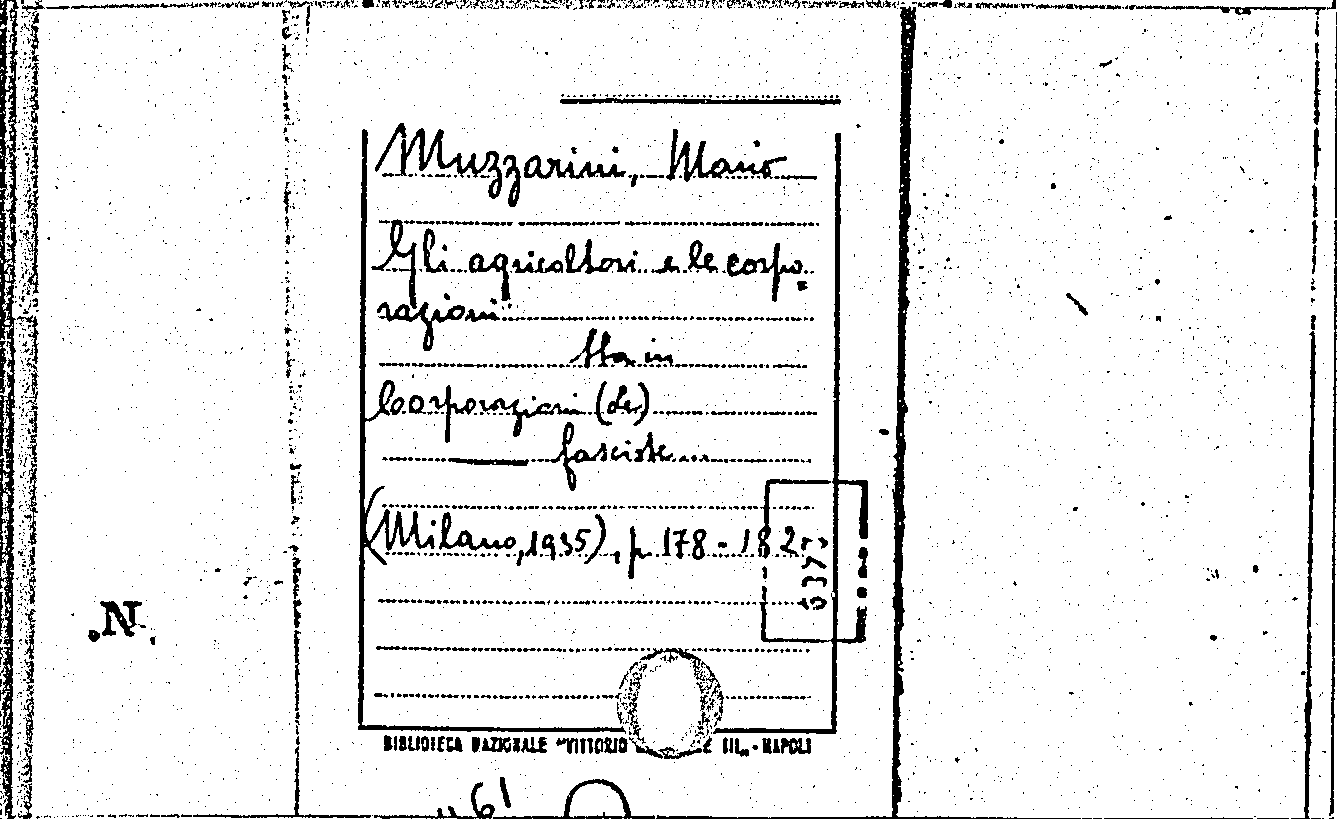 Muzzarini, Mario
Gli agricoltori e le corpo=
razioni
Sta in
Corporazioni (Le)
fasciste...
(Milano, 1935), p. 178-182
.N.
BIBLIOTECA NAZIONALE "VITTORIO III" - NAPOLI
61